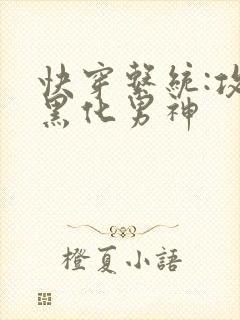 快穿系統:攻
黑化男神
橙夏小語